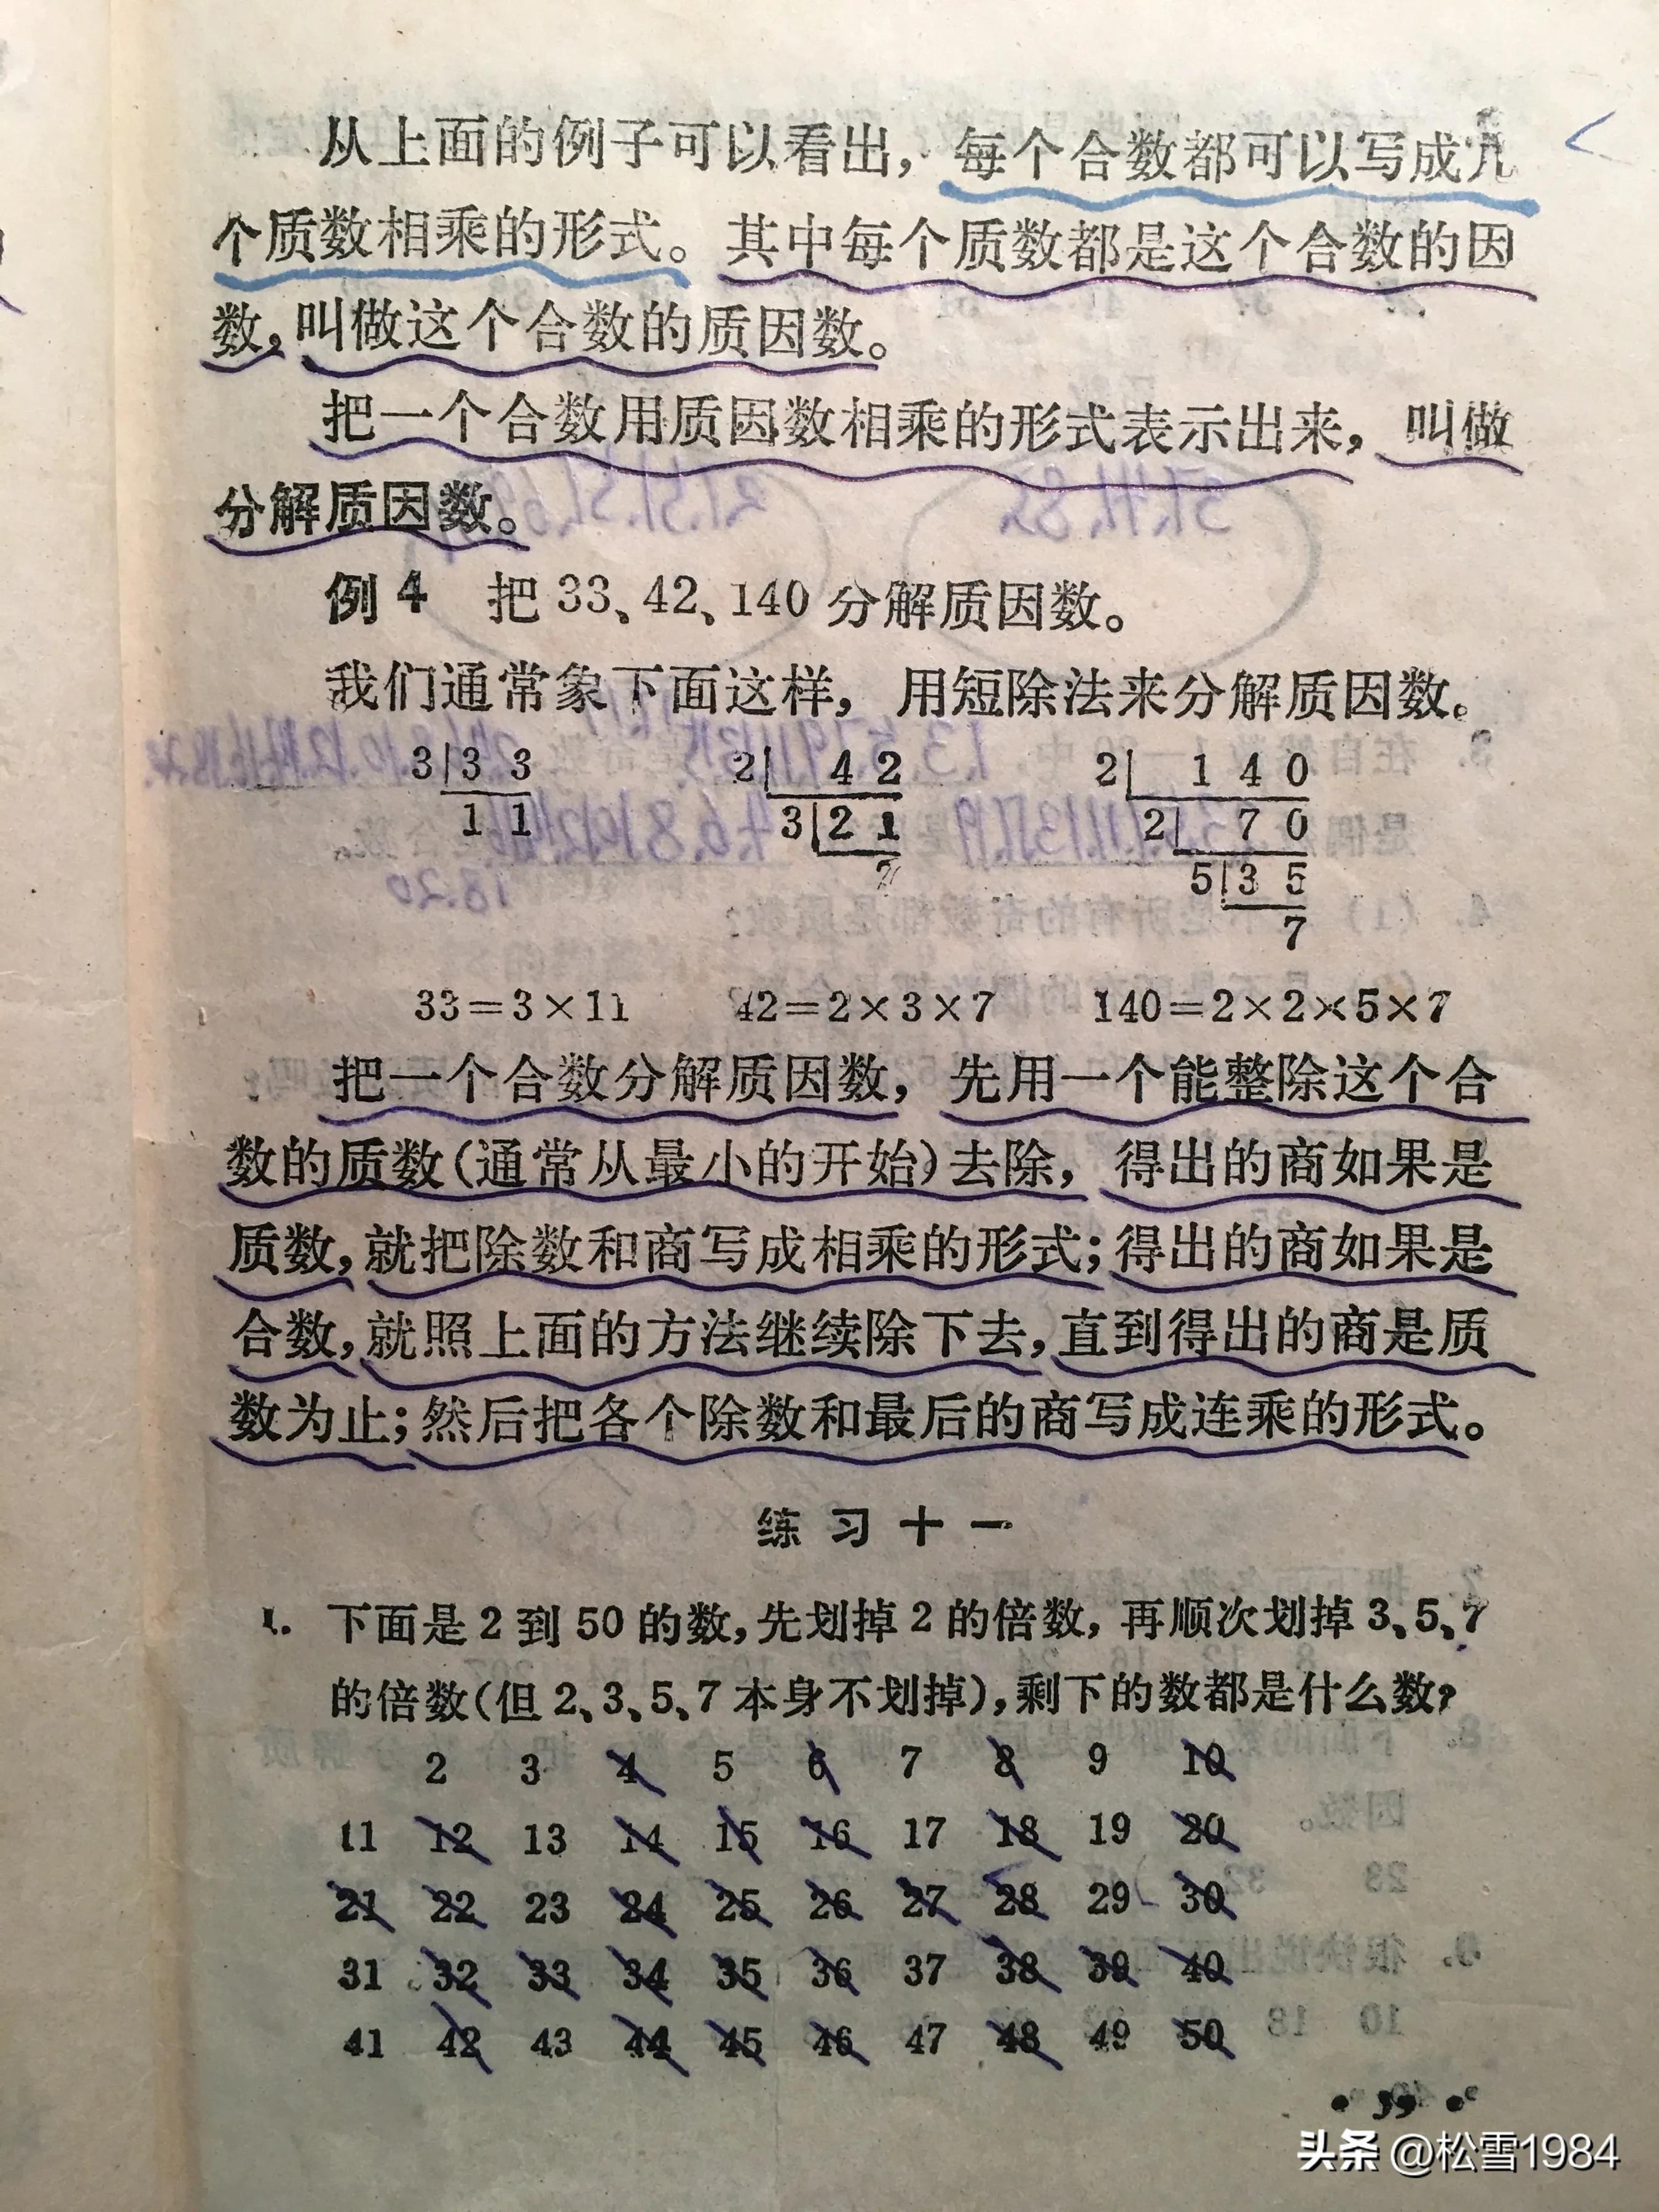 从上面的例子可以看出，每个合数都可以写成几
个质数相乘的形式。其中每个质数都是这个合数的因
数，叫做这个合数的质因数。
把一个合数用质因数相乘的形式表示出来，叫做
分解质因数。
例4 把33、42、140分解质因数。
我们通常象下面这样，用短除法来分解质因数。
3|33 2|42 2|140
11 3|21 2|70
7 5|35
7
33=3×11 42=2×3×7 140=2×2×5×7
把一个合数分解质因数，先用一个能整除这个合
数的质数（通常从最小的开始）去除，得出的商如果是
质数，就把除数和商写成相乘的形式；得出的商如果是
合数，就照上面的方法继续除下去，直到得出的商是质
数为止；然后把各个除数和最后的商写成连乘的形式。
练习十一
1. 下面是2到50的数，先划掉2的倍数，再顺次划掉3、5、7
的倍数（但2、3、5、7本身不划掉），剩下的数都是什么数？
2 3 4 5 6 7 8 9 10
11 12 13 14 15 16 17 18 19 20
21 22 23 24 25 26 27 28 29 30
31 32 33 34 35 36 37 38 39 40
41 42 43 44 45 46 47 48 49 50
头条 @松雪1984